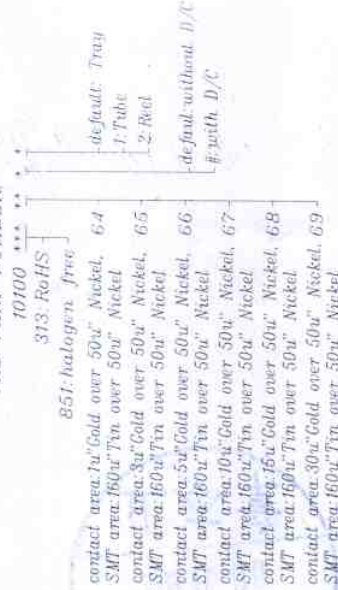 10100 *** ** * *
313: RoHS
851: halogen free
default: Tray
1: Tube
2: Reel
defaul:without D/C
#:with D/C
contact area:1u"Gold over 50u" Nickel, 64
SMT area:160u"Tin over 50u" Nickel
contact area:3u"Gold over 50u" Nickel, 65
SMT area:160u"Tin over 50u" Nickel
contact area:5u"Gold over 50u" Nickel, 66
SMT area:160u"Tin over 50u" Nickel
contact area:10u"Gold over 50u" Nickel, 67
SMT area:160u"Tin over 50u" Nickel
contact area:15u"Gold over 50u" Nickel, 68
SMT area:160u"Tin over 50u" Nickel
contact area:30u"Gold over 50u" Nickel, 69
SMT area:160u"Tin over 50u" Nickel